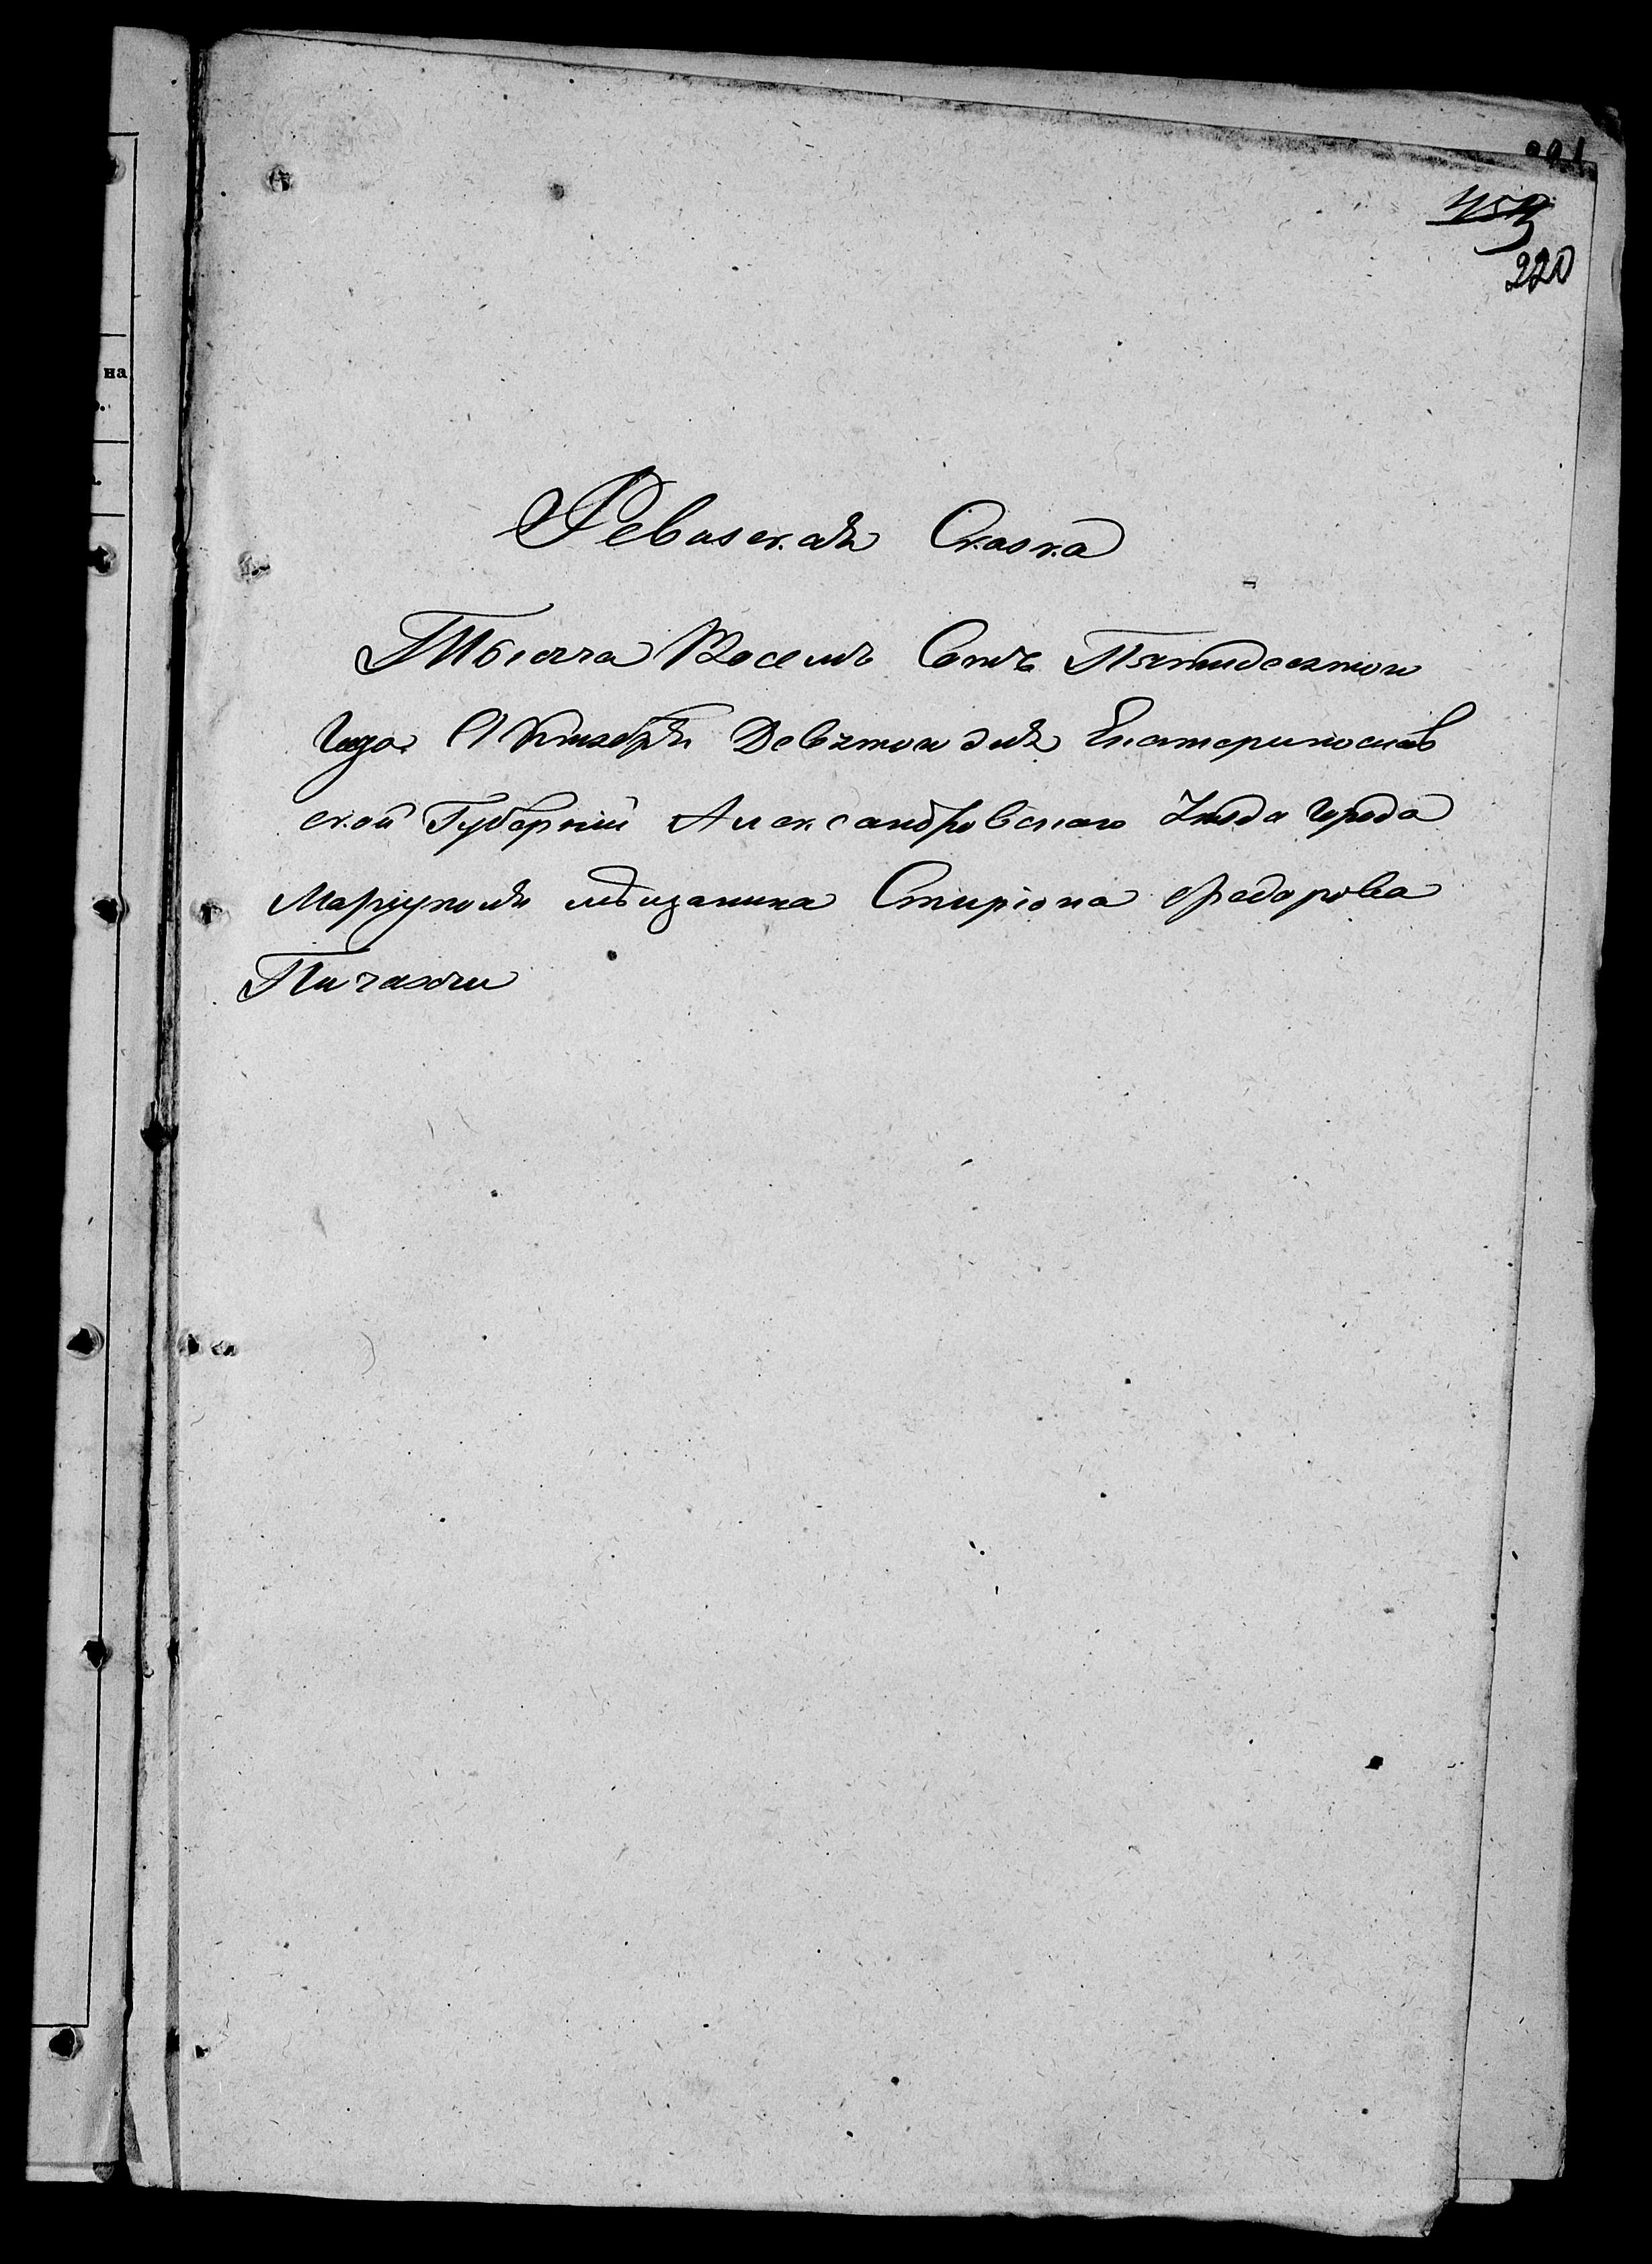 001
220
на
Ревизская Сказка
Тысяча Восемь Сотъ Пятидесятои
года Октября Девятои дня Екатеринослав
ской Губерніи Александровскаго Уезда города
Маріуполя мѣщанина Спиріона Федорова
Пичахчи